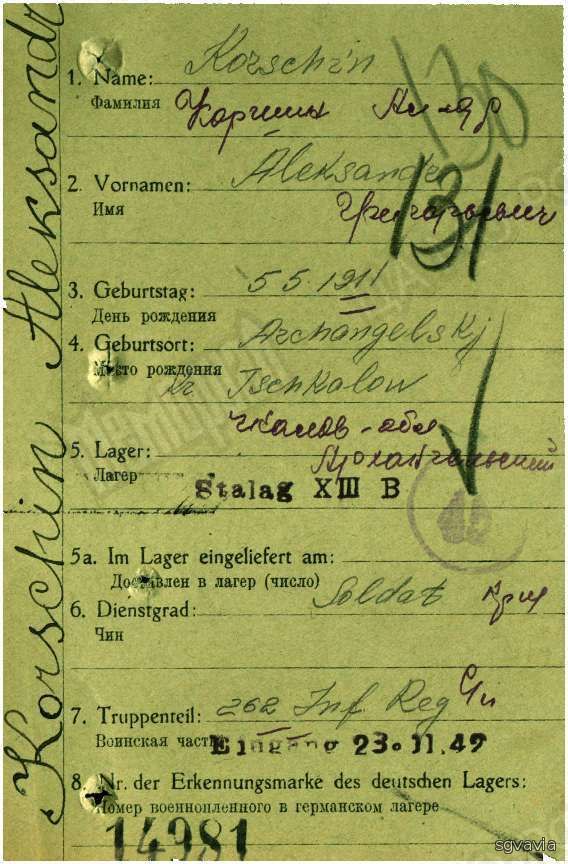 Korschin Aleksandr
1. Name: Korschin
Фамилия Коршин
130
2. Vornamen: Aleksandr
Имя Григорьевич
131
3. Geburtstag: 5 5. 1911
День рождения
4. Geburtsort: Archangelskj
Место рождения
Kr. Tschkalow
Чкалов-обл
5. Lager:
Лагер
Stalag XIII B
5a. Im Lager eingeliefert am:
Доставлен в лагер (число)
6. Dienstgrad: Soldat
Чин
7. Truppenteil: 262 Inf Reg
Воинская часть Eingang 23. 11. 42
8. Nr. der Erkennungsmarke des deutschen Lagers:
Номер военнопленного в германском лагере
14981
sgvavia